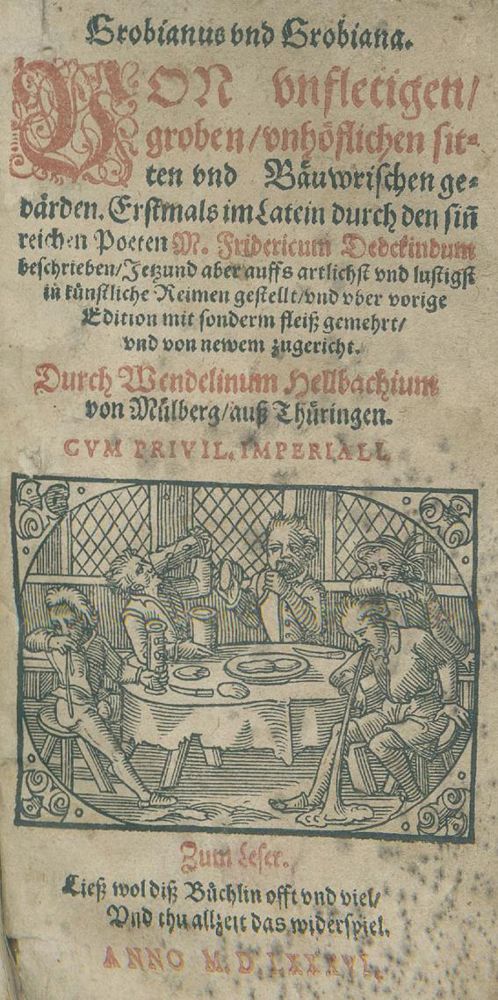 Grobianus vnd Grobiana.
VON vnfletigen/
groben/vnhöflichen sit-
ten vnd Bäuwrischen ge-
bärden. Erstmals im Latein durch den siñ
reichen Poeten M. Fridericum Dedekindum
beschrieben/Jetzund aber auffs artlichst vnd lustigst
in künstliche Reimen gestellt/vnd vber vorige
Edition mit sonderm fleiß gemehrt/
vnd von newem zugericht.
Durch Wendelinum Hellbachium
von Mülberg/auß Thüringen.
CVM PRIVIL. IMPERIALI.
Zum Leser.
Ließ wol diß Büchlin offt vnd viel/
Vnd thu allzeit das widerspiel.
ANNO M. D. LXXXVI.